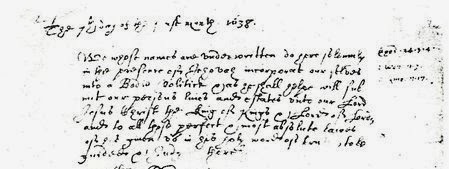 The 7th day of the first month 1638.
We whose names are underwritten do here solemnly
in the presence of Jehovah incorporat our selves
into a Bodie Politick & as he shall helpe will sub
mit our persons lives and estates unto our Lord
Jesus Christ the King of Kings & Lord of Lords
and to all those perfect & most absolute lawes
of his given us in his holy word of truth to be
guided & judged thereby
Exod. 24.3.4
2 11.3
2 11.17